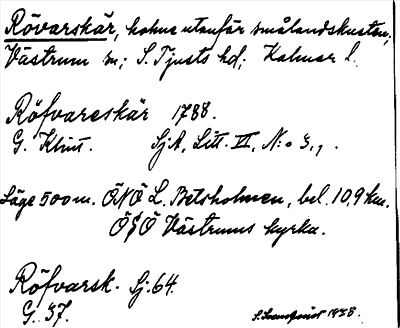 Rövarskär, holme utanför smålandskusten,
Västrum sn; S. Tjusts hd; Kalmar l.
Röfvareskär 1788.
G. Klint. SjA, Litt. VI, N:o 3,, .
Läge 500 m. ÖNÖ L. Betsholmen, bel. 10,9 km.
ÖSÖ Västrums kyrka.
Röfvarsk. Sj: 64.
G. 37. 1928.